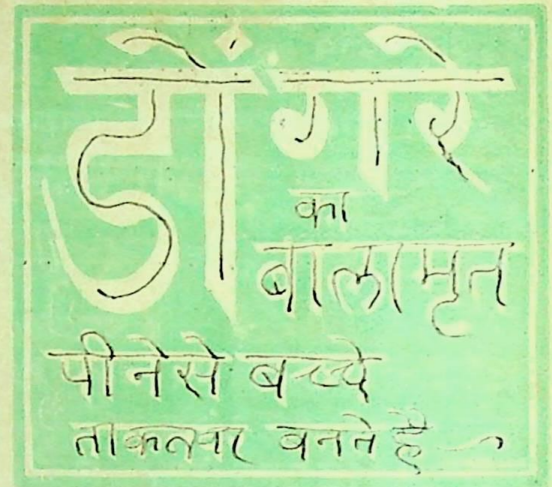 डोंगरे
का
बालामृत
पीनेसे बच्चे
ताकतवर बनते है